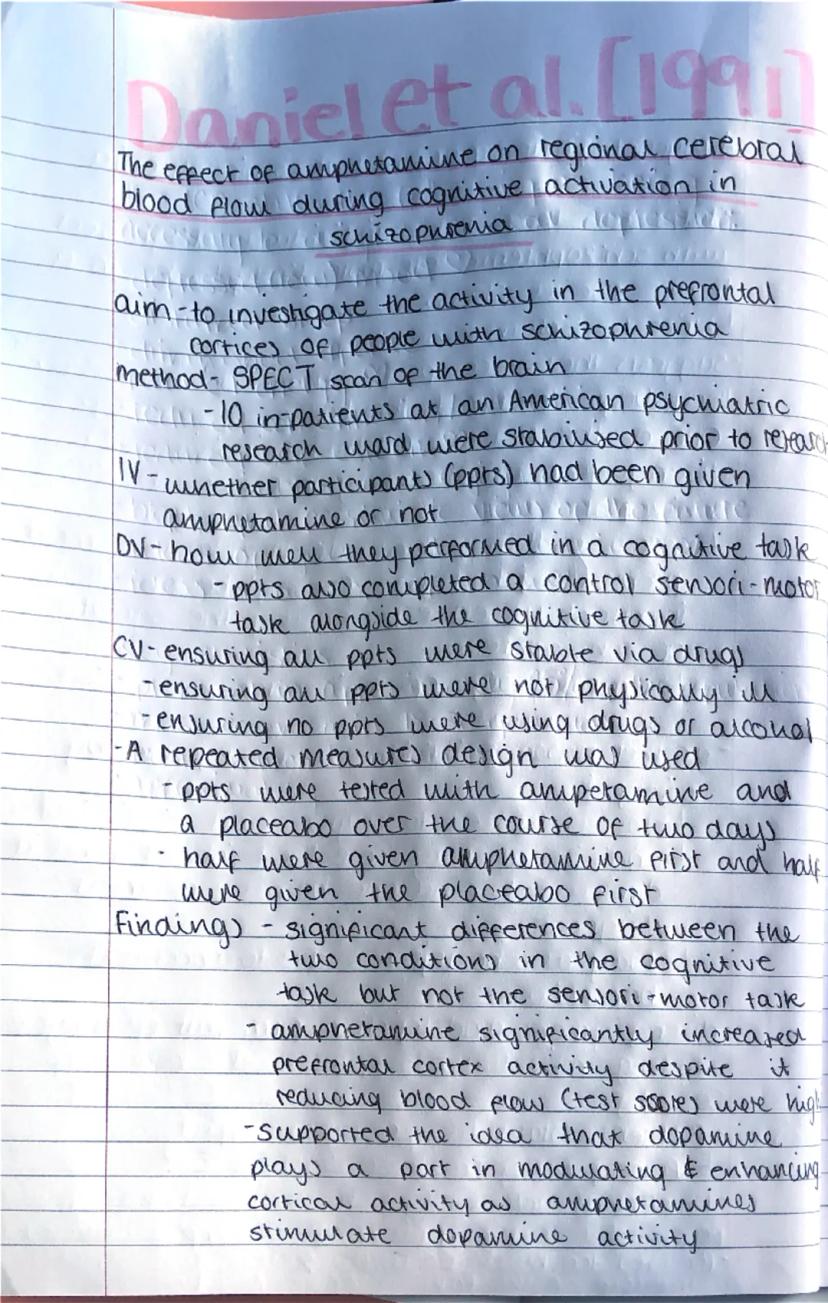 Daniel et al. [1991]
The effect of amphetamine on regional cerebral
blood flow during cognitive activation in
schizophrenia
aim - to investigate the activity in the prefrontal
cortices of people with schizophrenia
method - SPECT scan of the brain
- 10 in-patients at an American psychiatric
research ward were stabilised prior to research
IV - whether participants (ppts) had been given
amphetamine or not
DV - how well they performed in a cognitive task
- ppts also completed a control sensori-motor
task alongside the cognitive task
CV - ensuring all ppts were stable via drugs
- ensuring all ppts were not physically ill
- ensuring no ppts were using drugs or alcohol
- A repeated measures design was used
- ppts were tested with ampetamine and
a placeabo over the course of two days
- half were given amphetamine first and half
were given the placeabo first
Findings - significant differences between the
two conditions in the cognitive
task but not the sensori-motor task
- amphetamine significantly increased
prefrontal cortex activity despite it
reducing blood flow (test scores were high
- supported the idea that dopamine
plays a part in modulating & enhancing
cortical activity as amphetamines
stimulate dopamine activity